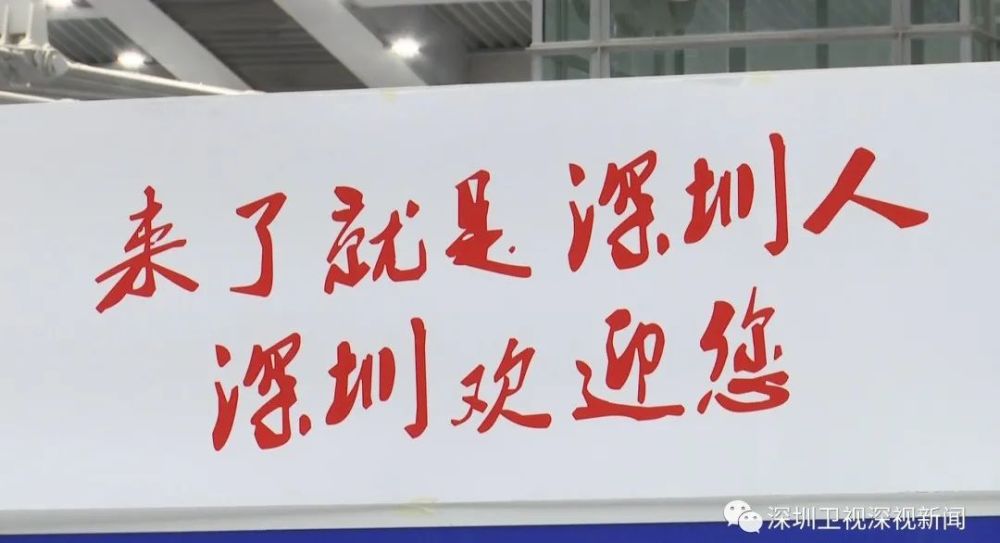 来了就是深圳人
深圳欢迎您
深圳卫视深视新闻